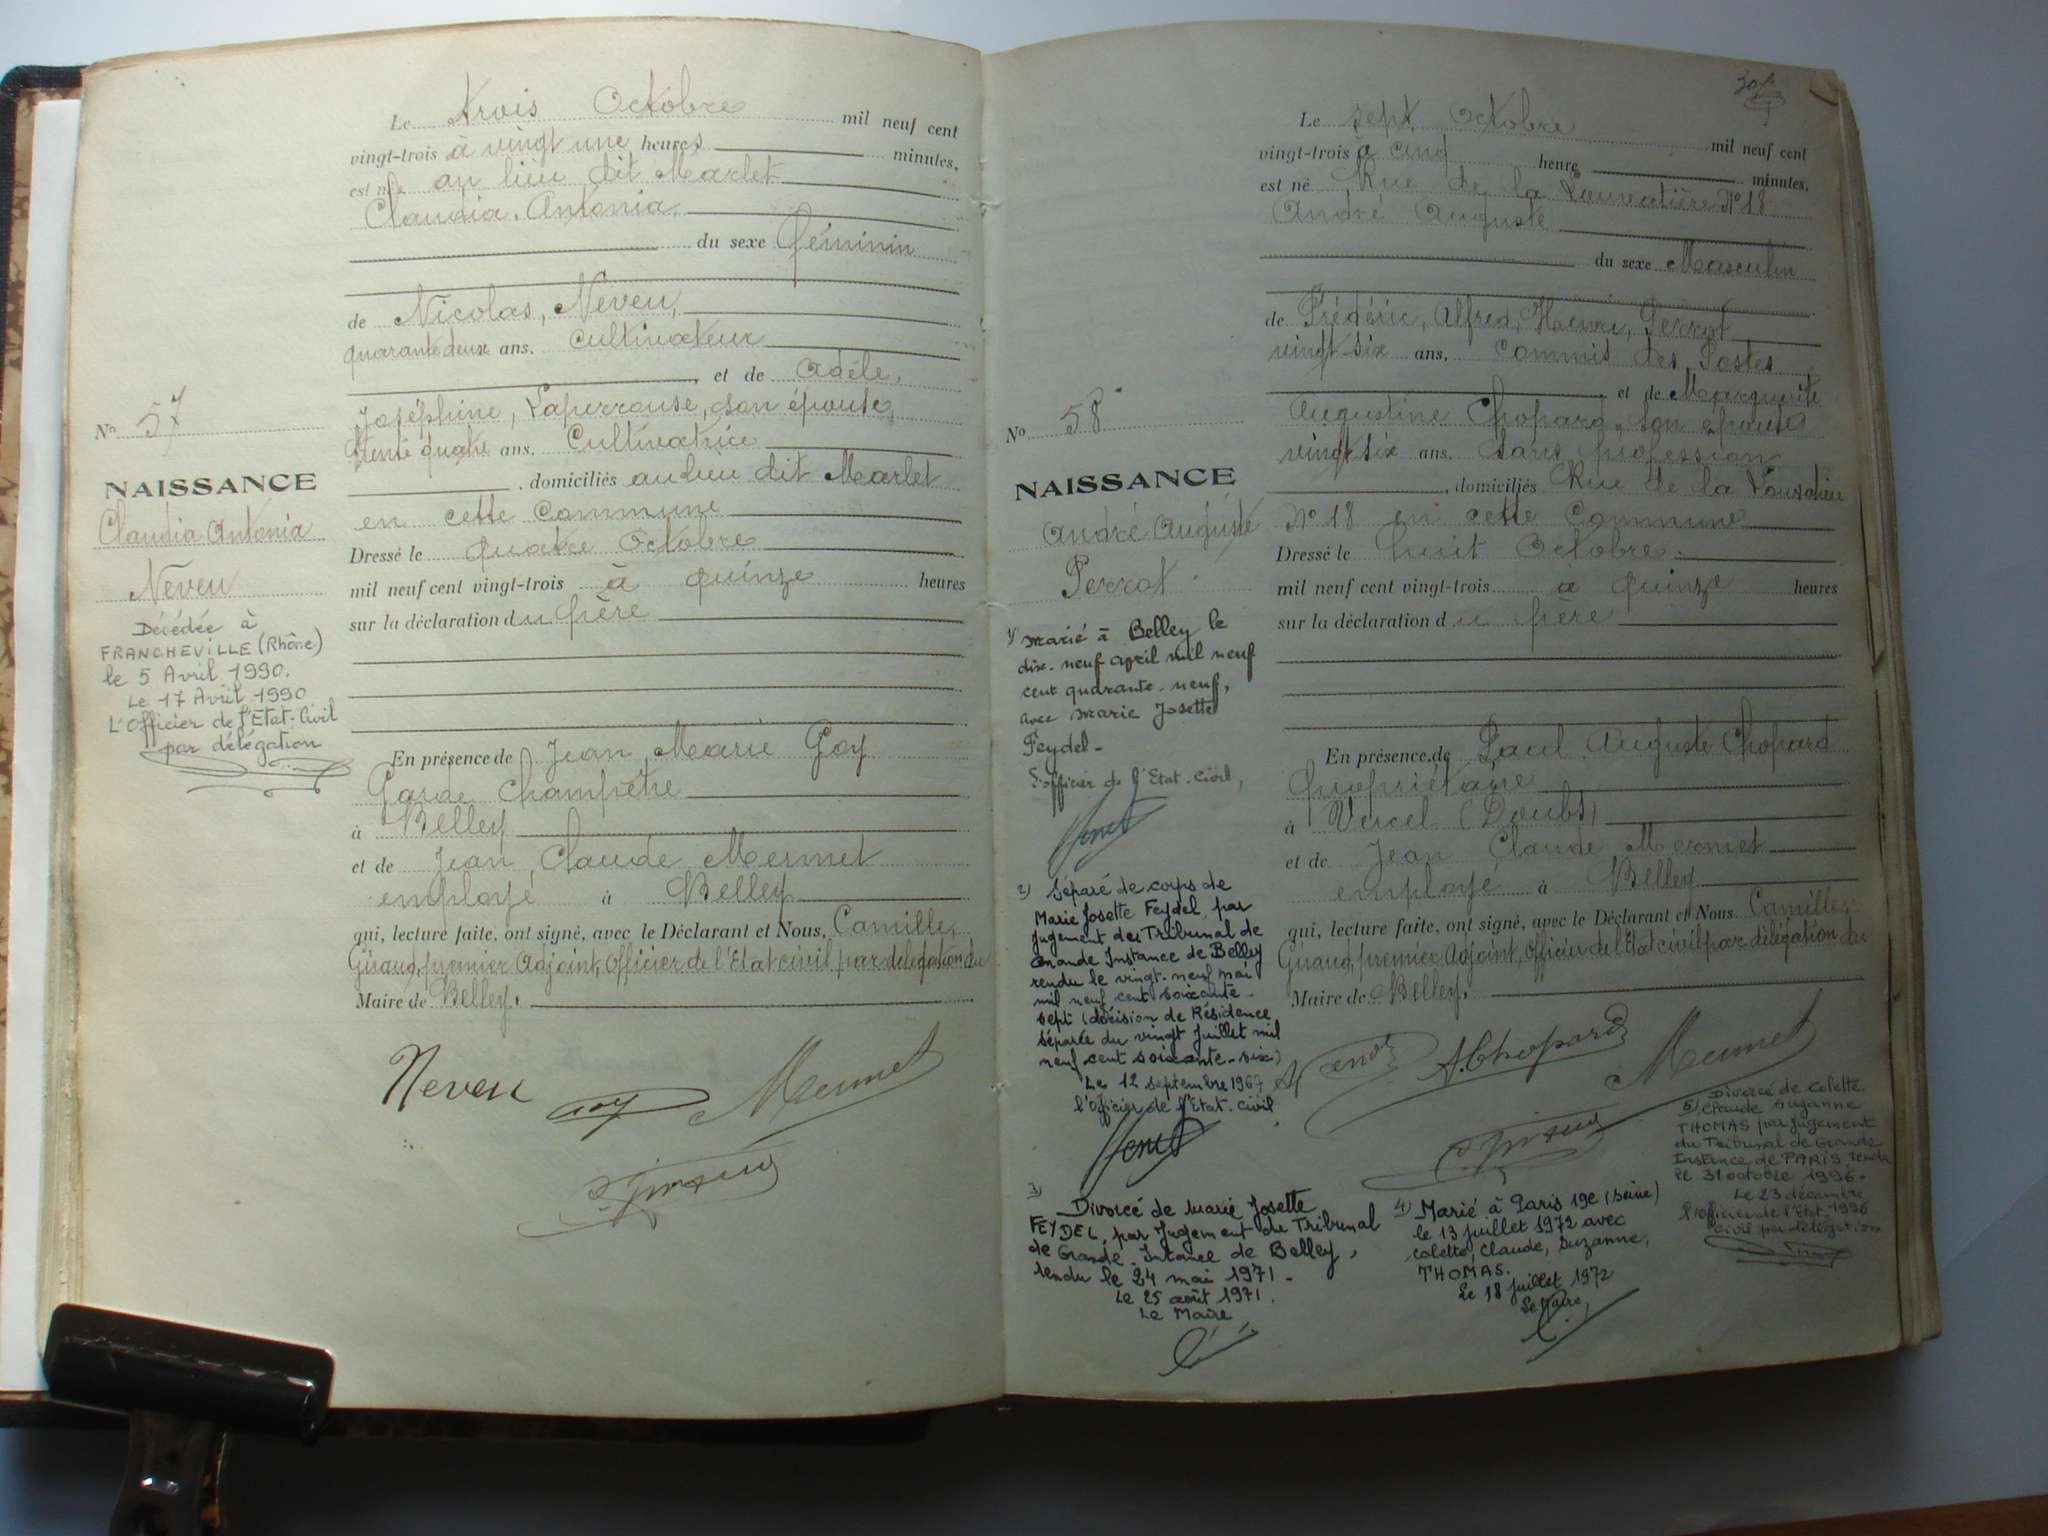 Le trois Octobre mil neuf cent
vingt-trois à vingt une heures minutes,
est née au lieu dit Marlet
Claudia, Antonia,
du sexe féminin
de Nicolas, Neveu,
quarante deux ans, cultivateur
, et de Adèle,
Joséphine, Laperrouse, son épouse,
trente quatre ans, Cultivatrice
, domiciliés au lieu dit Marlet
en cette commune
Dressé le quatre Octobre
mil neuf cent vingt-trois à quinze heures
sur la déclaration du père
En présence de Jean Marie Goy
Garde Champêtre
à Belley
et de Jean Claude Mermet
employé à Belley
qui, lecture faite, ont signé, avec le Déclarant et Nous, Camille,
Giraud, premier Adjoint, Officier de l'Etat civil par délégation du
Maire de Belley.
Neveu Goy Mermet
C. Giraud
No 57
NAISSANCE
Claudia Antonia
Neveu
Décédée à
FRANCHEVILLE (Rhône)
le 5 Avril 1990.
Le 17 Avril 1990
L'Officier de l'Etat-Civil
par délégation
Le sept Octobre mil neuf cent
vingt-trois à cinq heure minutes,
est né Rue de la No 18
André Auguste
du sexe Masculin
de Frédéric, Alfred, Henri, Perrot
vingt-six ans, commis des Postes
, et de Marguerite
Augustine Chopard, son épouse
vingt six ans, sans profession
, domiciliés Rue de la
No 18 en cette Commune
Dressé le huit Octobre
mil neuf cent vingt-trois à quinze heures
sur la déclaration du père
En présence de Paul Auguste Chopard
propriétaire
à Vercel (Doubs)
et de Jean Claude Mermet
employé à Belley
qui, lecture faite, ont signé, avec le Déclarant et Nous Camille,
Giraud, premier Adjoint, Officier de l'Etat civil par délégation du
Maire de Belley.
A. Chopard Mermet
C. Giraud
No 58
NAISSANCE
André Auguste
Perrot
1) Marié à Belley le
dix-neuf april mil neuf
cent quarante-neuf,
avec Marie Josette
Feydel-
L'officier de l'Etat-Civil,
2) Séparé de corps de
Marie Josette Feydel, par
jugement du Tribunal de
Grande Instance de Belley
rendu le vingt-neuf mai
mil neuf cent soixante-
sept (décision de Résidence
séparée du vingt Juillet mil
neuf cent soixante-six)
Le 12 septembre 1967
l'Officier de l'Etat-Civil
3) Divorcé de Marie Josette
FEYDEL, par Jugement du Tribunal
de Grande Intance de Belley,
rendu le 24 mai 1971-
Le 25 août 1971.
Le Maire
4) Marié à Paris 19e (Seine)
le 13 juillet 1972 avec
Colette, Claude, Suzanne,
THOMAS.
Le 18 juillet 1972
Le Maire,
5) Divorcé de Colette
Claude Suzanne
THOMAS par jugement
du Tribunal de Grande
Instance de PARIS rendu
le 31 octobre 1996-
Le 23 décembre
1996
l'officier de l'Etat-
Civil par délégation